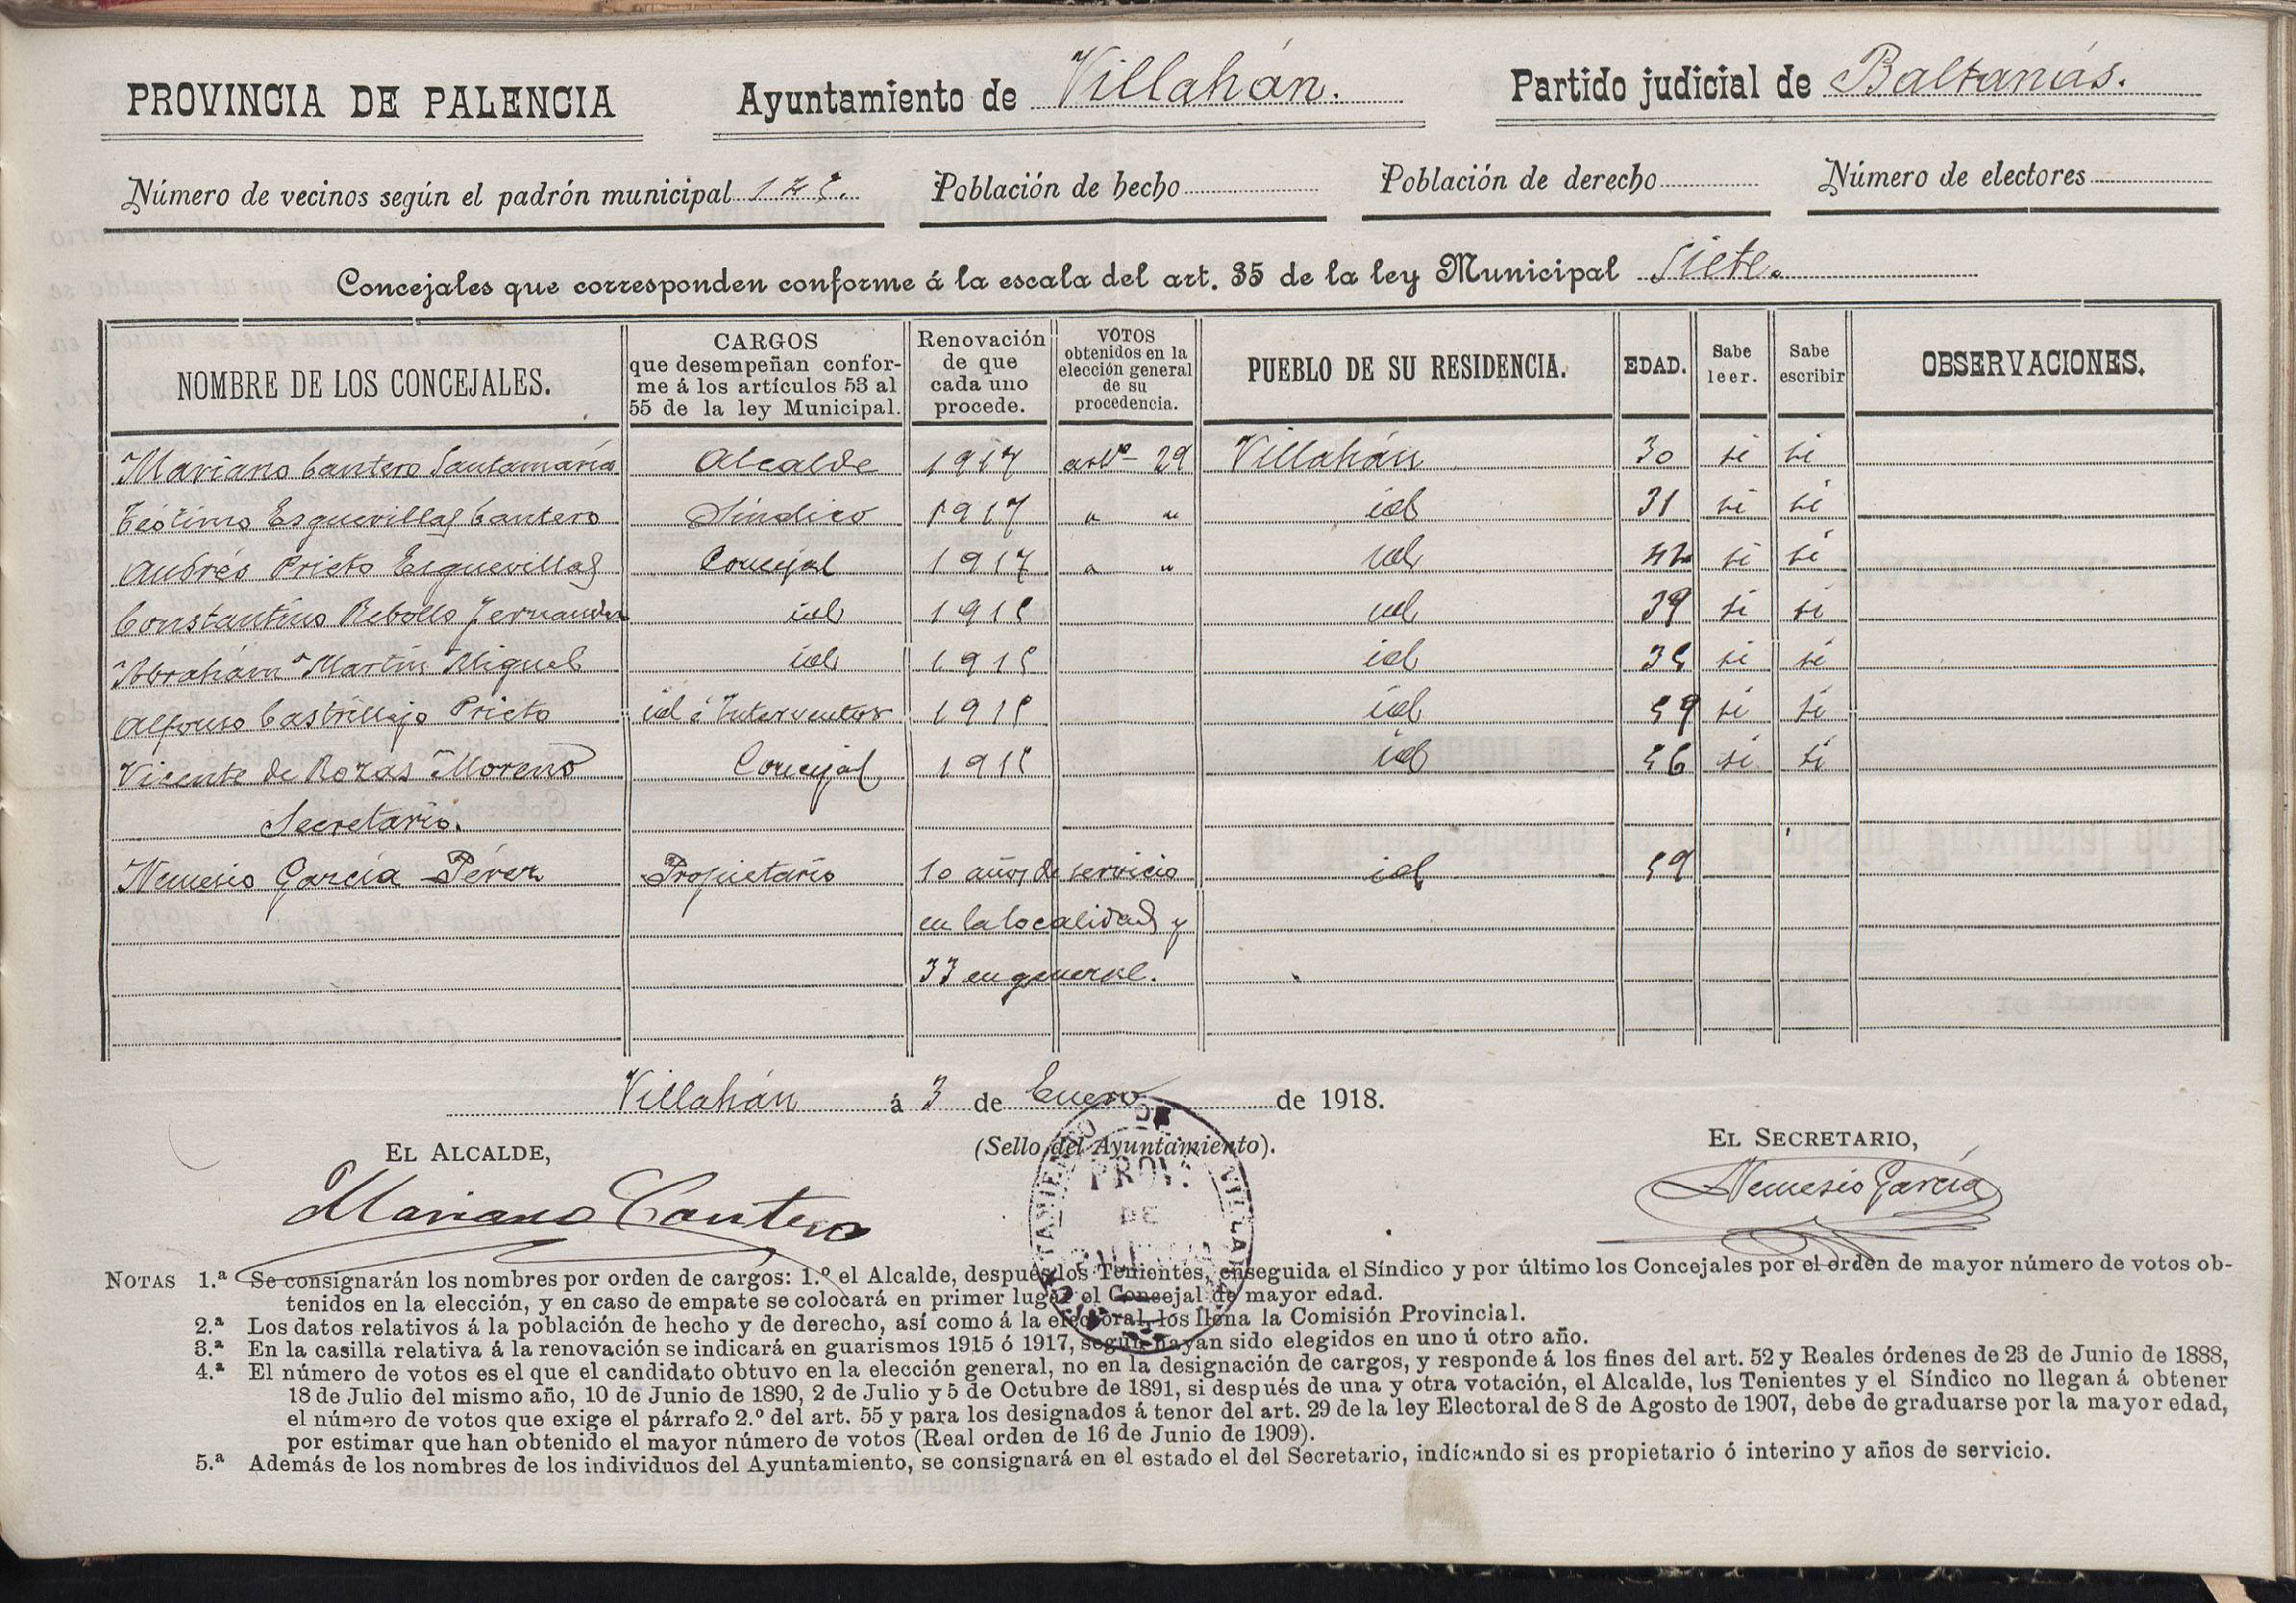 PROVINCIA DE PALENCIA Ayuntamiento de Villahán. Partido judicial de Baltanás.
Número de vecinos según el padrón municipal Población de hecho Población de derecho Número de electores
Concejales que corresponden conforme á la escala del art. 35 de la ley Municipal Siete.
NOMBRE DE LOS CONCEJALES. CARGOS que desempeñan confor- me á los artículos 53 al 55 de la ley Municipal. Renovación de que cada uno procede. VOTOS obtenidos en la elección general de su procedencia. PUEBLO DE SU RESIDENCIA. EDAD. Sabe leer. Sabe escribir OBSERVACIONES.
Mariano Cantero Santamaría Alcalde 1917 artº 29 Villahán 30 si si
Teótimo Esguevillas Cantero Síndico 1917 " " id 31 si si
Andrés Prieto Esguevillas Concejal 1917 " " id 42 si si
Constantino Rebollo Fernandez id 1915 id 39 si si
Abrahám Martín Miguel id 1915 id 35 si si
Alfonso Castrillejo Prieto id é Interventor 1915 id 59 si si
Vicente de Rozas Moreno Concejal 1915 id 56 si si
Secretario.
Nemesio García Pérez Propietario 10 años de servicio id 59
en la localidad y
33 en general.
Villahán á 3 de Enero de 1918.
EL ALCALDE, (Sello del Ayuntamiento). EL SECRETARIO,
Mariano Cantero PROV. DE Nemesio García
NOTAS 1.ª Se consignarán los nombres por orden de cargos: 1.º el Alcalde, después los Tenientes, enseguida el Síndico y por último los Concejales por el orden de mayor número de votos ob-
tenidos en la elección, y en caso de empate se colocará en primer lugar el Concejal de mayor edad.
2.ª Los datos relativos á la población de hecho y de derecho, así como á la electoral, los llena la Comisión Provincial.
3.ª En la casilla relativa á la renovación se indicará en guarismos 1915 ó 1917, según hayan sido elegidos en uno ú otro año.
4.ª El número de votos es el que el candidato obtuvo en la elección general, no en la designación de cargos, y responde á los fines del art. 52 y Reales órdenes de 23 de Junio de 1888,
18 de Julio del mismo año, 10 de Junio de 1890, 2 de Julio y 5 de Octubre de 1891, si después de una y otra votación, el Alcalde, los Tenientes y el Síndico no llegan á obtener
el número de votos que exige el párrafo 2.º del art. 55 y para los designados á tenor del art. 29 de la ley Electoral de 8 de Agosto de 1907, debe de graduarse por la mayor edad,
por estimar que han obtenido el mayor número de votos (Real orden de 16 de Junio de 1909).
5.ª Además de los nombres de los individuos del Ayuntamiento, se consignará en el estado el del Secretario, indicando si es propietario ó interino y años de servicio.